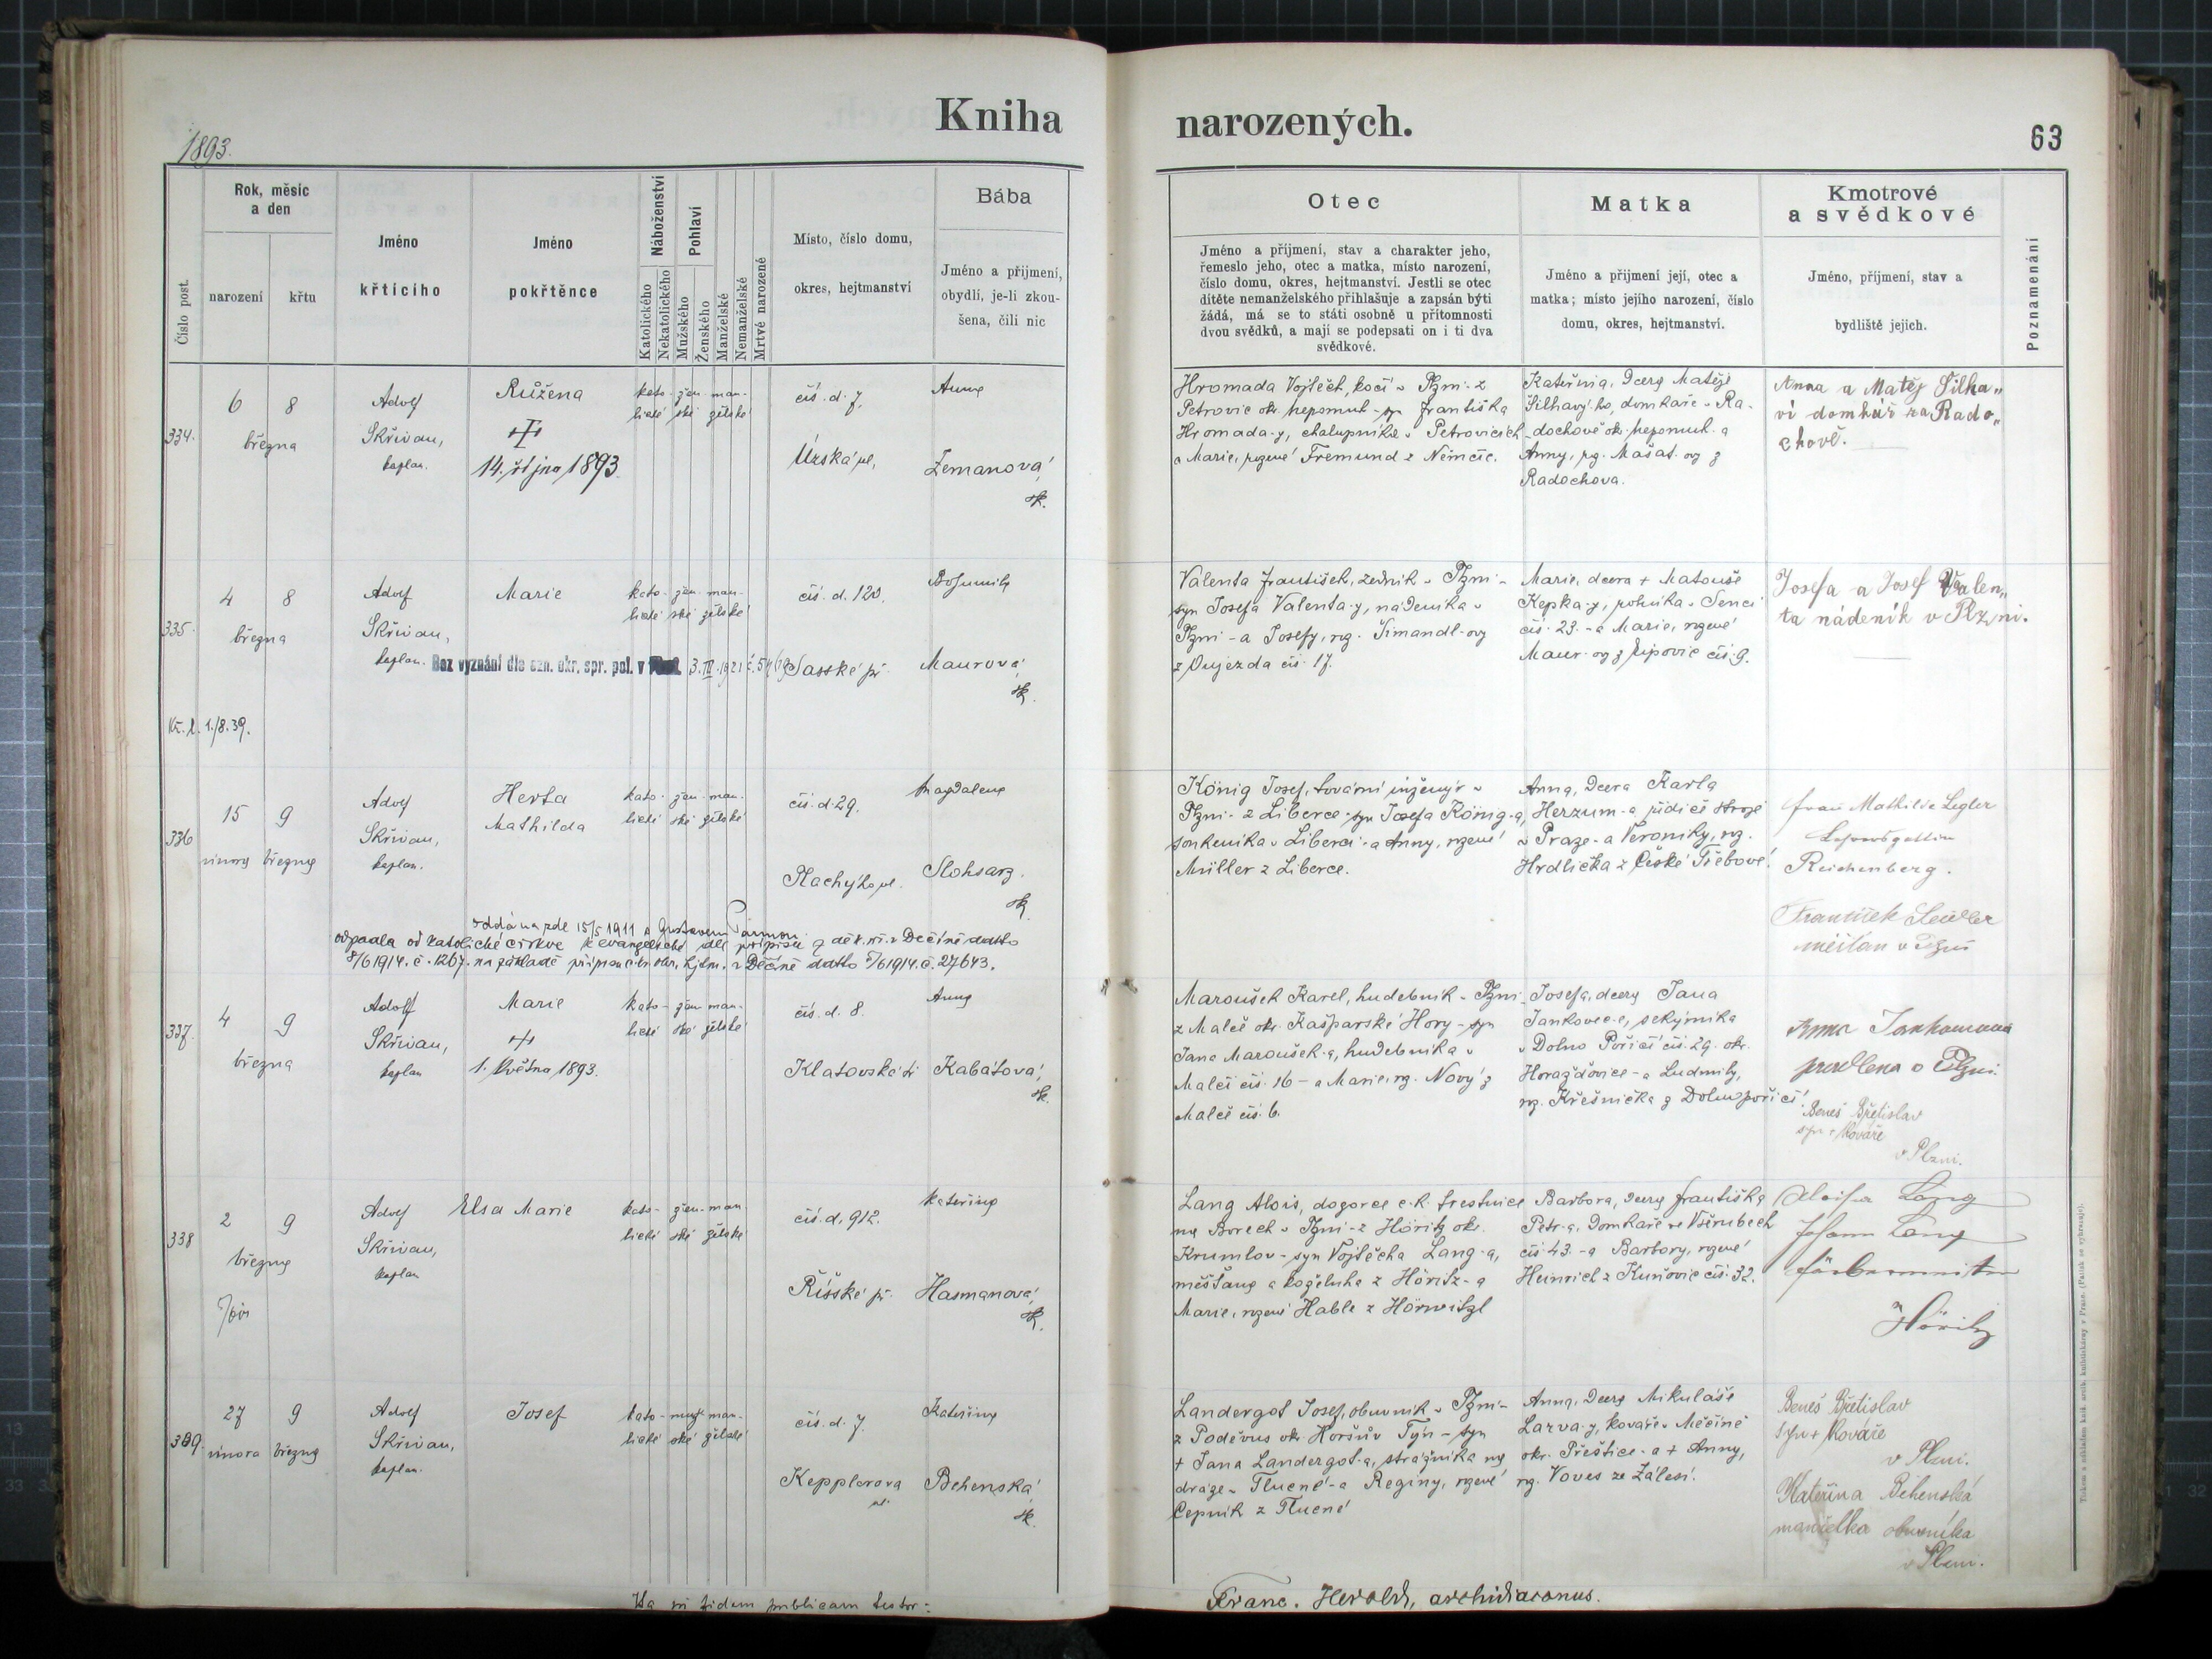 1893.
Kniha
Číslo post.
Rok, měsíc
a den
narození
křtu
Jméno
křtícího
Jméno
pokřtěnce
Náboženství
Katolického
Nekatolického
Pohlaví
Mužského
Ženského
Manželské
Nemanželské
Mrtvé narozené
Místo, číslo domu,
okres, hejtmanství
Bába
Jméno a přijmení,
obydlí, je-li zkou-
šena, čili nic
334.
6 8
března
Adolf
Skřivan,
kaplan.
Růžena
14. října 1893
kato- žen- man-
lické ské želské
čís. d. 7,
Úzská ul,
Anna
Zemanová,
zk.
335.
4 8
března
Adolf
Skřivan,
kaplan.
Marie
kato- žen- man-
lické ské želské
čís. d. 120.
Sasské př.
Bohumila
Maurová,
zk.
Bez vyznání dle ozn. okr. spr. pol. v
3. III. 1921
Kř. l. 1./8. 39.
336
15 9
února března
Adolf
Skřivan,
kaplan.
Herta
Mathilda
kato- žen- man-
lické ské želské
čís. d. 29.
Plachýho ul.
Magdalena
Slohsarz.
zk.
oddána zde 15/5 1911 s Gustavem
odpadla od katolické církve k evangelické dle přípisu z děk. úř. v Děčíně datto
8/6 1914. č. 1267. na základě přípisu c.k. okr. hejtm. v Děčíně datto 5/6 1914. č. 27643.
337.
4 9
března
Adolf
Skřivan,
kaplan
Marie
1. května 1893.
kato- žen- man-
lické ské želské
čís. d. 8.
Klatovská tř.
Anna
Kabátová,
zk.
338
2 9
března
Adolf
Skřivan,
kaplan
Elsa Marie
kato- žen- man
lické ské želské
čís. d. 912.
Říšské př.
Kateřina
Hasmanová,
zk.
339.
27 9
února března
Adolf
Skřivan,
kaplan.
Josef
kato- muž- man-
lické ské želské
čís. d. 7.
Kepplerova
ul.
Kateřina
Behenská
zk.
Ita in fidem publicam testor:
narozených.
63
Otec
Jméno a příjmení, stav a charakter jeho,
řemeslo jeho, otec a matka, místo narození,
číslo domu, okres, hejtmanství. Jestli se otec
dítěte nemanželského přihlašuje a zapsán býti
žádá, má se to státi osobně u přítomnosti
dvou svědků, a mají se podepsati on i ti dva
svědkové.
Matka
Jméno a přijmení její, otec a
matka; místo jejího narození, číslo
domu, okres, hejtmanství.
Kmotrové
a svědkové
Jméno, příjmení, stav a
bydliště jejich.
Poznamenání
Hromada Vojtěch, kočí v Plzni- z
Petrovic okr. Nepomuk - syn Františka
Hromada-y, chalupníka v Petrovicích
a Marie, rozené Fremund z Němčic.
Kateřina, dcera Matěje
Šilhavý-ho, domkáře v Ra-
dochově okr. Nepomuk a
Anny, roz. Mašat-ov z
Radochova.
Anna a Matěj Šilha„
ví domkář na Rado„
chově.
Valenta František, zedník v Plzni-
syn Josefa Valenta-y, nádeníka v
Plzni - a Josefy, roz. Šimandl-ovy
z Oujezda čís. 17.
Marie, dcera + Matouše
Kepka-y, rolníka v Senci
čís. 23. - a Marie, rozené
Maur-ov z Lipovic čís. 9.
Josefa a Josef Valen„
ta nádeník v Plzni.
König Josef, tovární inženýr v
Plzni- z Liberce - syn Josefa König-a,
soukeníka v Liberci - a Anny, rozené
Müller z Liberce.
Anna, dcera Karla
Herzum-a řídiče strojů
v Praze - a Veroniky, roz.
Hrdlička z České Třebové.
Frau Mathilde Legler
Reichenberg.
František Seidler
měšťan v Plzni
Maroušek Karel, hudebník v Plzni
z Malče okr. Kašparské Hory - syn
Jana Maroušek-a, hudebníka v
Malči čís. 16 - a Marie, roz. Nový z
Malče čís. 6.
Josefa, dcera Jana
Jankovec-e, sekýrníka
v Dolno Poříčí čís. 29. okr.
Horažďovice - a Ludmily,
roz. Křešnička z Dolnopoříčí.
v Plzni.
Beneš Břetislav
syn + kováře
v Plzni.
Lang Alois, dozorce c.k. trestnice
na Borech v Plzni - z Höritz okr.
Krumlov - syn Vojtěcha Lang-a,
měšťana a koželuha z Höritz - a
Marie, rozené Hable z Hörwitzl
Barbora, dcera Františka
Petr-a, domkáře ve Všerubech
čís 43. - a Barbory, rozené
Heinrich z Kunovic čís. 32.
Aloisia Lang
Johann Lang
in
Höritz
Landergot Josef, obuvník v Plzni-
z Poděvus okr. Horšův Týn - syn
+ Jana Landergot-a, strážníka na
dráze v Tlucné - a Reginy, rozené
Čepník z Tlucné
Anna, dcera Mikuláše
Larva-y, kováře v Měčíně
okr. Přeštice - a + Anny,
roz. Voves ze Zálesí.
Beneš Břetislav
syn + kováře
v Plzni.
Kateřina Behenská
manželka obuvníka
v Plzni.
Franc. Herold, archidiaconus.